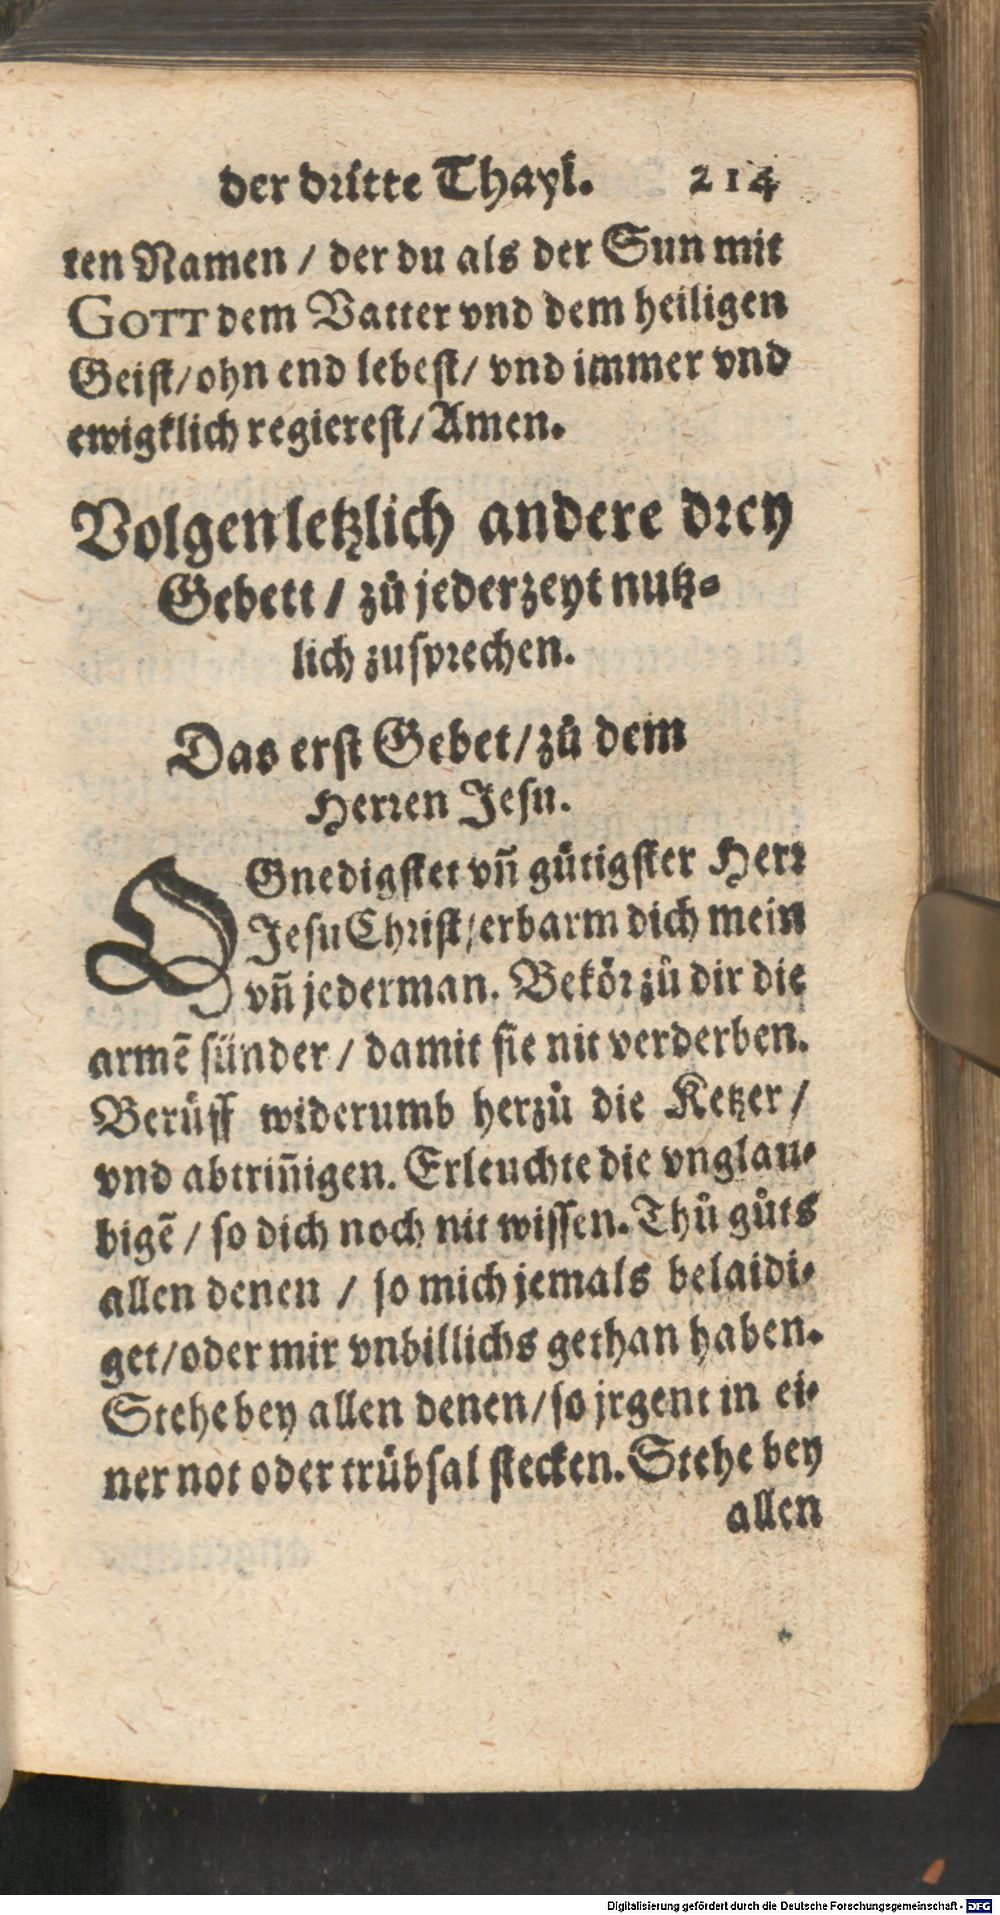 der dritte Thayl. 214
ten Namen / der du als der Sun mit
GOTT dem Vatter vnd dem heiligen
Geist / ohn end lebest / vnd immer vnd
ewigklich regierest / Amen.
Volgen letzlich andere drey
Gebett / zů jederzeyt nutz-
lich zusprechen.
Das erst Gebet / zů dem
Herren Jesu.
O Gnedigster vñ gütigster Herr
Jesu Christ / erbarm dich mein
vñ jederman. Bekör zů dir die
armẽ sünder / damit sie nit verderben.
Berüff widerumb herzů die Ketzer /
vnd abtriñigen. Erleuchte die vnglau-
bigẽ / so dich noch nit wissen. Thů gůts
allen denen / so mich jemals belaidi-
get / oder mir vnbillichs gethan haben.
Stehe bey allen denen / so jrgent in ei-
ner not oder trübsal stecken. Stehe bey
allen
Digitalisierung gefördert durch die Deutsche Forschungsgemeinschaft - DFG